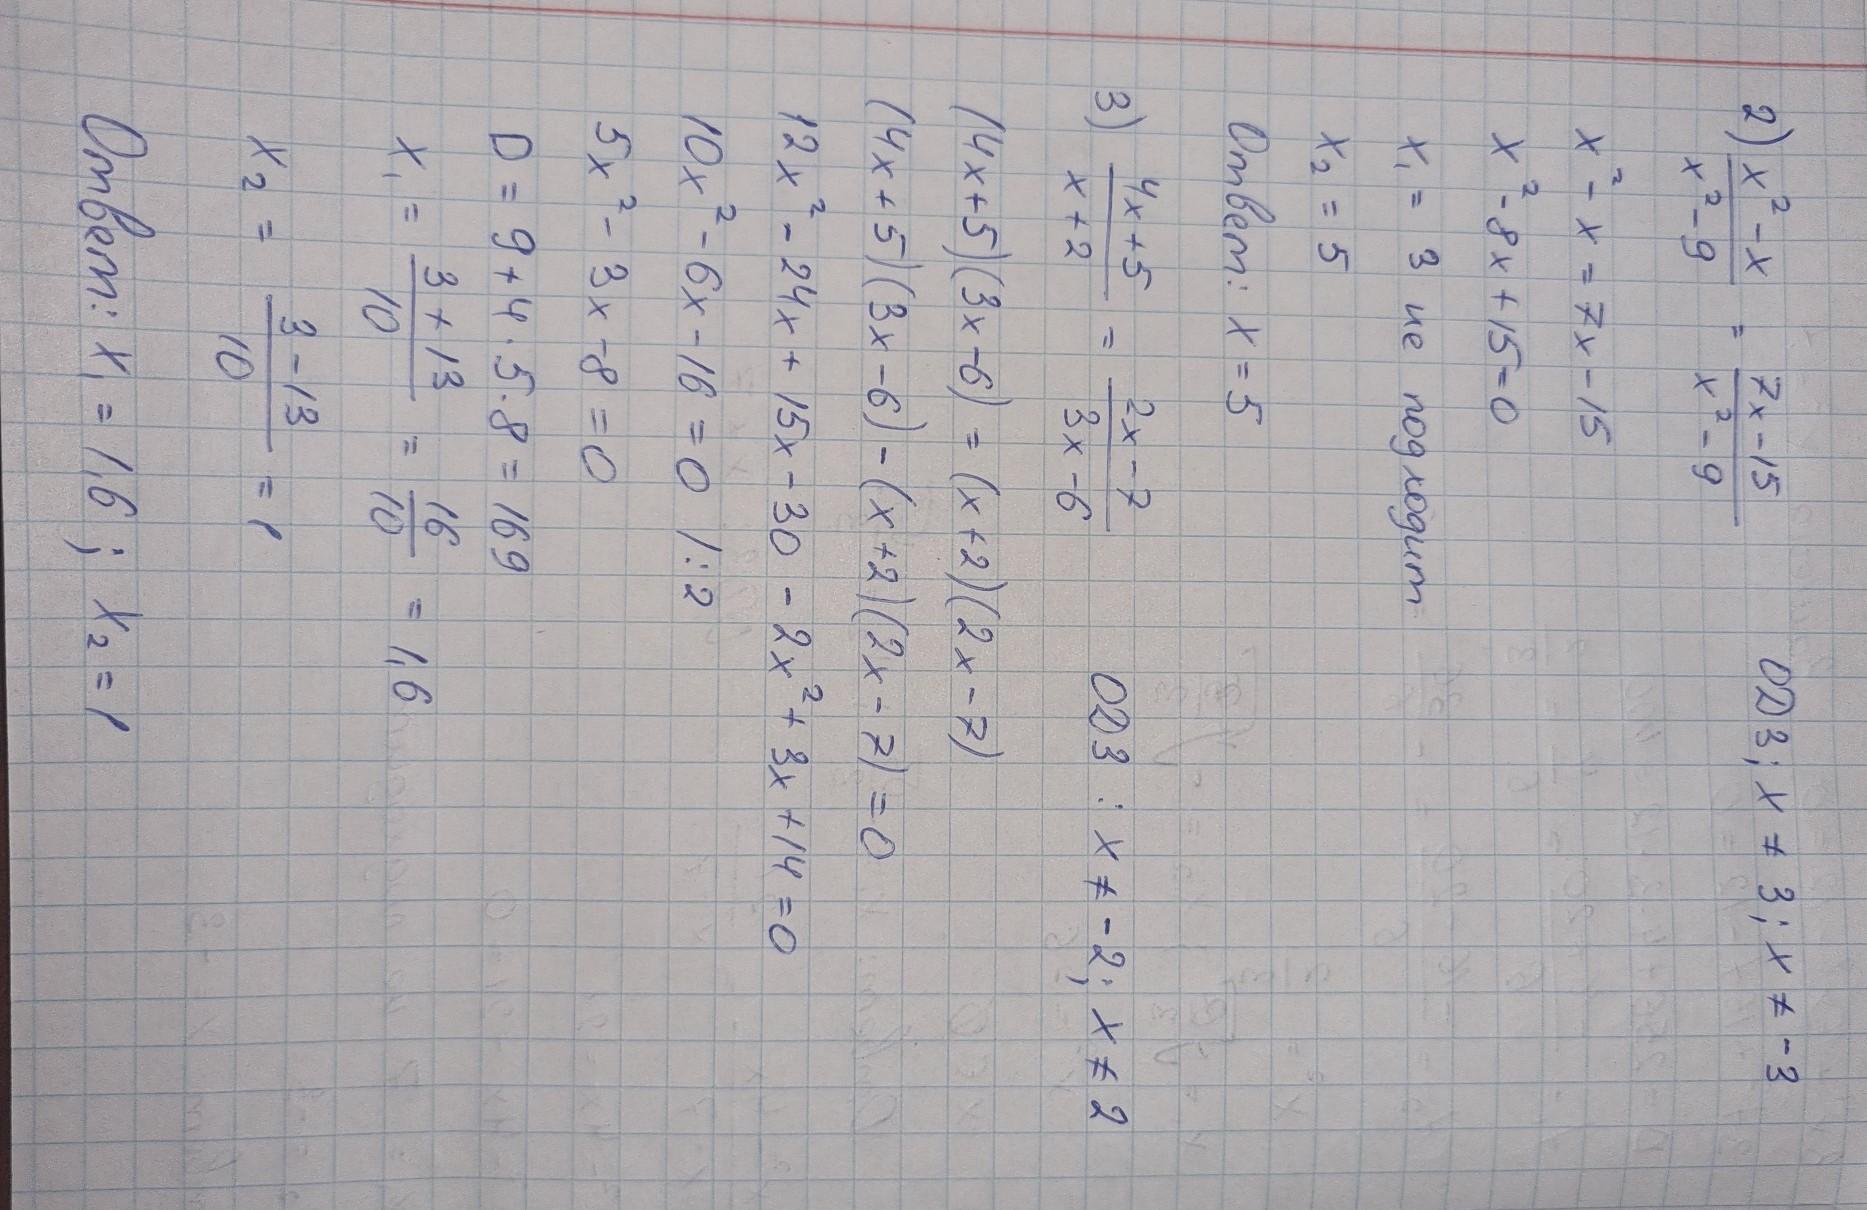 2) x²-x / x²-9 = 7x-15 / x²-9 ОДЗ; x ≠ 3; x ≠ -3
x² - x = 7x - 15
x² - 8x + 15 = 0
x₁ = 3 не подходит
x₂ = 5
Ответ: x = 5
3) 4x+5 / x+2 = 2x-7 / 3x-6 ОДЗ: x ≠ -2; x ≠ 2
(4x+5)(3x-6) = (x+2)(2x-7)
(4x+5)(3x-6) - (x+2)(2x-7) = 0
12x² - 24x + 15x - 30 - 2x² + 3x + 14 = 0
10x² - 6x - 16 = 0 /:2
5x² - 3x - 8 = 0
D = 9 + 4·5·8 = 169
x₁ = 3+13 / 10 = 16 / 10 = 1,6
x₂ = 3-13 / 10 = 1
Ответ: x₁ = 1,6; x₂ = 1